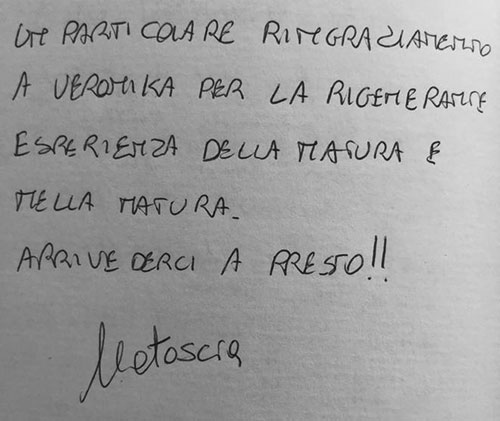 UN PARTICOLARE RINGRAZIAMENTO
A VERONIKA PER LA RIGENERANTE
ESPERIENZA DELLA NATURA E
NELLA NATURA.
ARRIVEDERCI A PRESTO!!
Natascia